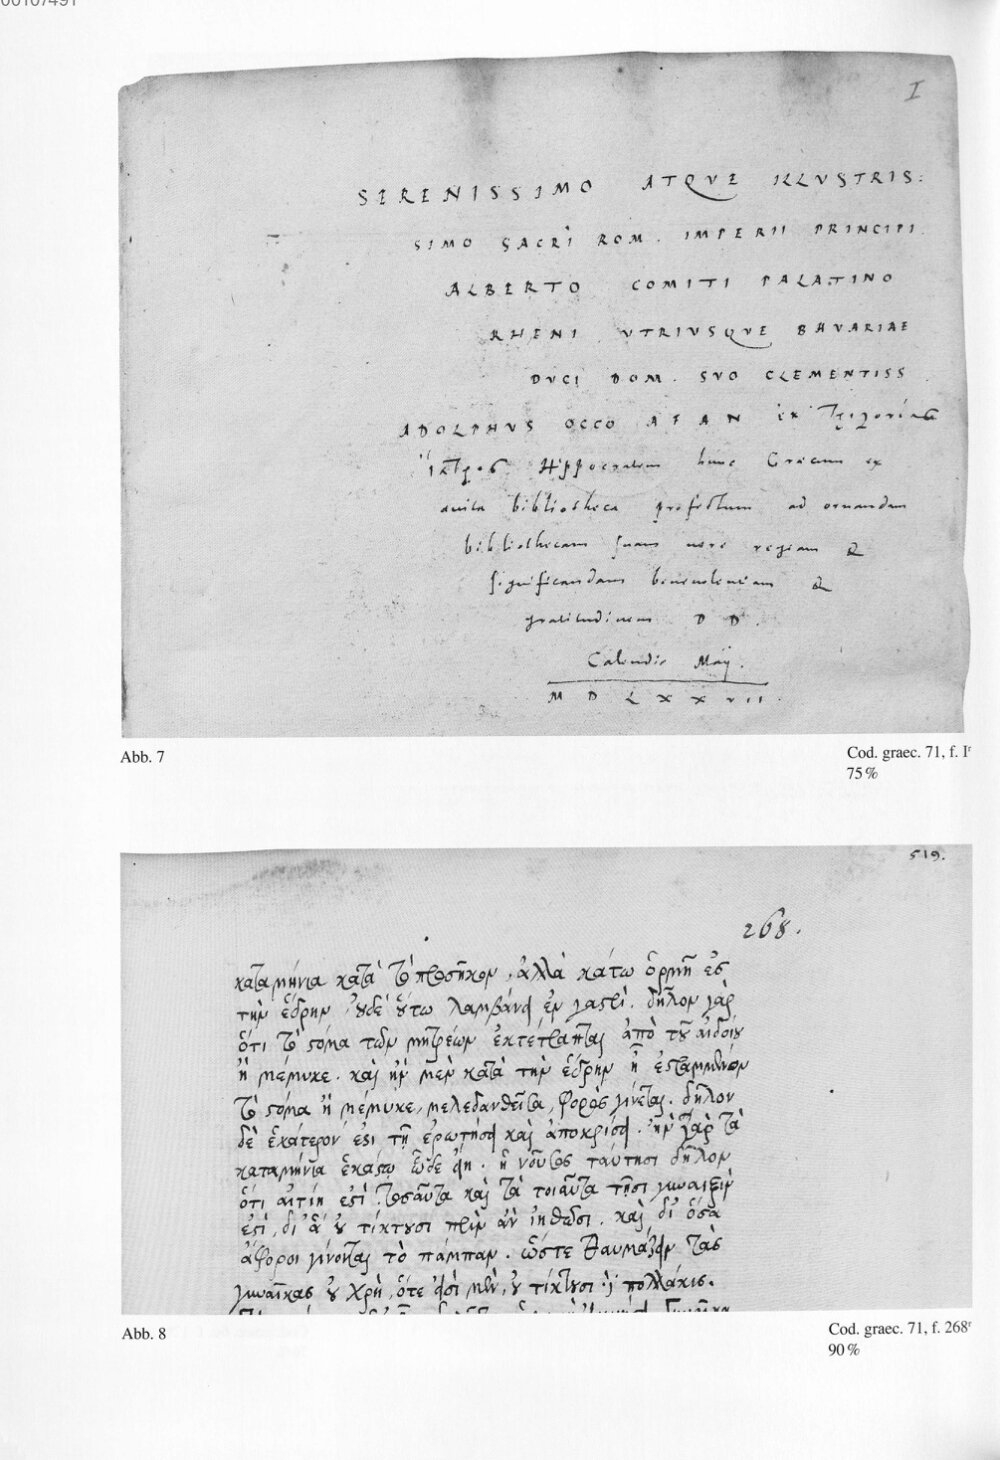 00107491
I
SERENISSIMO ATQVE ILLVSTRIS:
SIMO SACRI ROM. IMPERII PRINCIPI
ALBERTO COMITI PALATINO
RHENI VTRIVSQVE BAVARIAE
DVCI DOM. SVO CLEMENTISS
ADOLPHVS OCCO A F A N
ἰατρος Hippocratem hunc Graecum ex
auita bibliotheca profectum ad ornandam
bibliothecam suam uere regiam &
significandam beneuolentiam &
gratitudinem D D.
Calendis Maij.
M D L X X VII.
Abb. 7
Cod. graec. 71, f. Iʳ
75%
519.
268.
καταμήνια κατὰ τὸ προσῆκον, ἀλλὰ κάτω ὁρμῆ ἐς
τὴν ἕδρην, οὐδὲ οὕτω λαμβάνει ἐν γαστρί. δῆλον γὰρ
ὅτι τὸ στόμα τῶν μητρέων ἐκτέτραπται ἀπὸ τοῦ αἰδοίου
ἢ μέμυκε. καὶ ἢν μὲν κατὰ τὴν ἕδρην ἢ
τὸ στόμα ἢ μέμυκε, μελεδανθεῖσα, φορὸς γίνεται. δῆλον
δὲ ἑκάτερον ἐστὶ τῇ ἐρωτήσει καὶ ἀποκρίσει. ἢν γὰρ τὰ
καταμήνια ἑκάστῳ ὧδε ἔχῃ. ἡ νοῦσος ταύτησι δῆλον
ὅτι αἰτίη ἐστὶ. τοσαῦτα καὶ τὰ τοιαῦτα τῇσι γυναιξὶν
ἐστὶ, δι' ἃ οὐ τίκτουσι πρὶν ἂν ἰηθῶσι. καὶ δι' ὅσα
ἄφοροι γίνονται τὸ πάμπαν. ὥστε θαυμάζειν τὰς
γυναῖκας οὐ χρὴ, ὅτε οὐ τίκτουσι πολλάκις.
Abb. 8
Cod. graec. 71, f. 268ʳ
90%